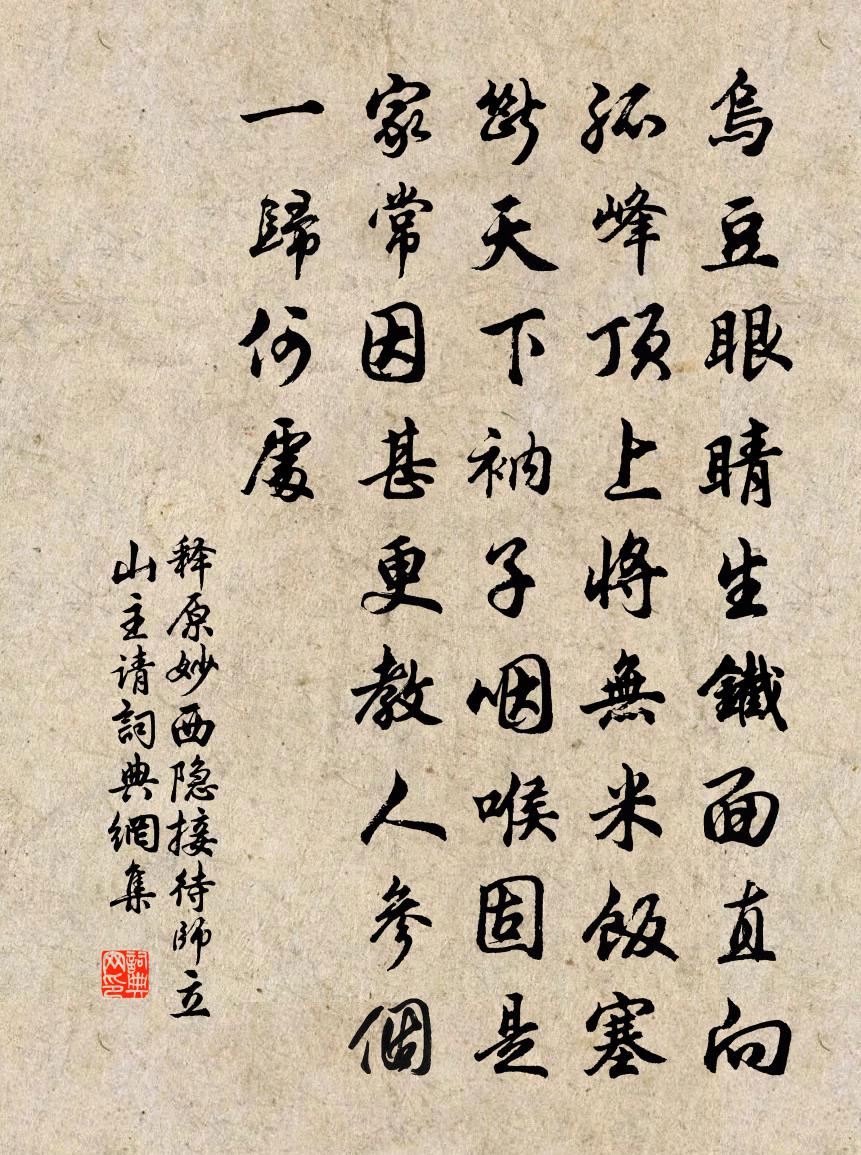 烏豆眼睛生鐵面直向
孤峰頂上將無米飯塞
斷天下衲子咽喉固是
家常因甚更教人參個
一歸何處
释原妙西隐接待師立
山主请詞典網集
詞典网印